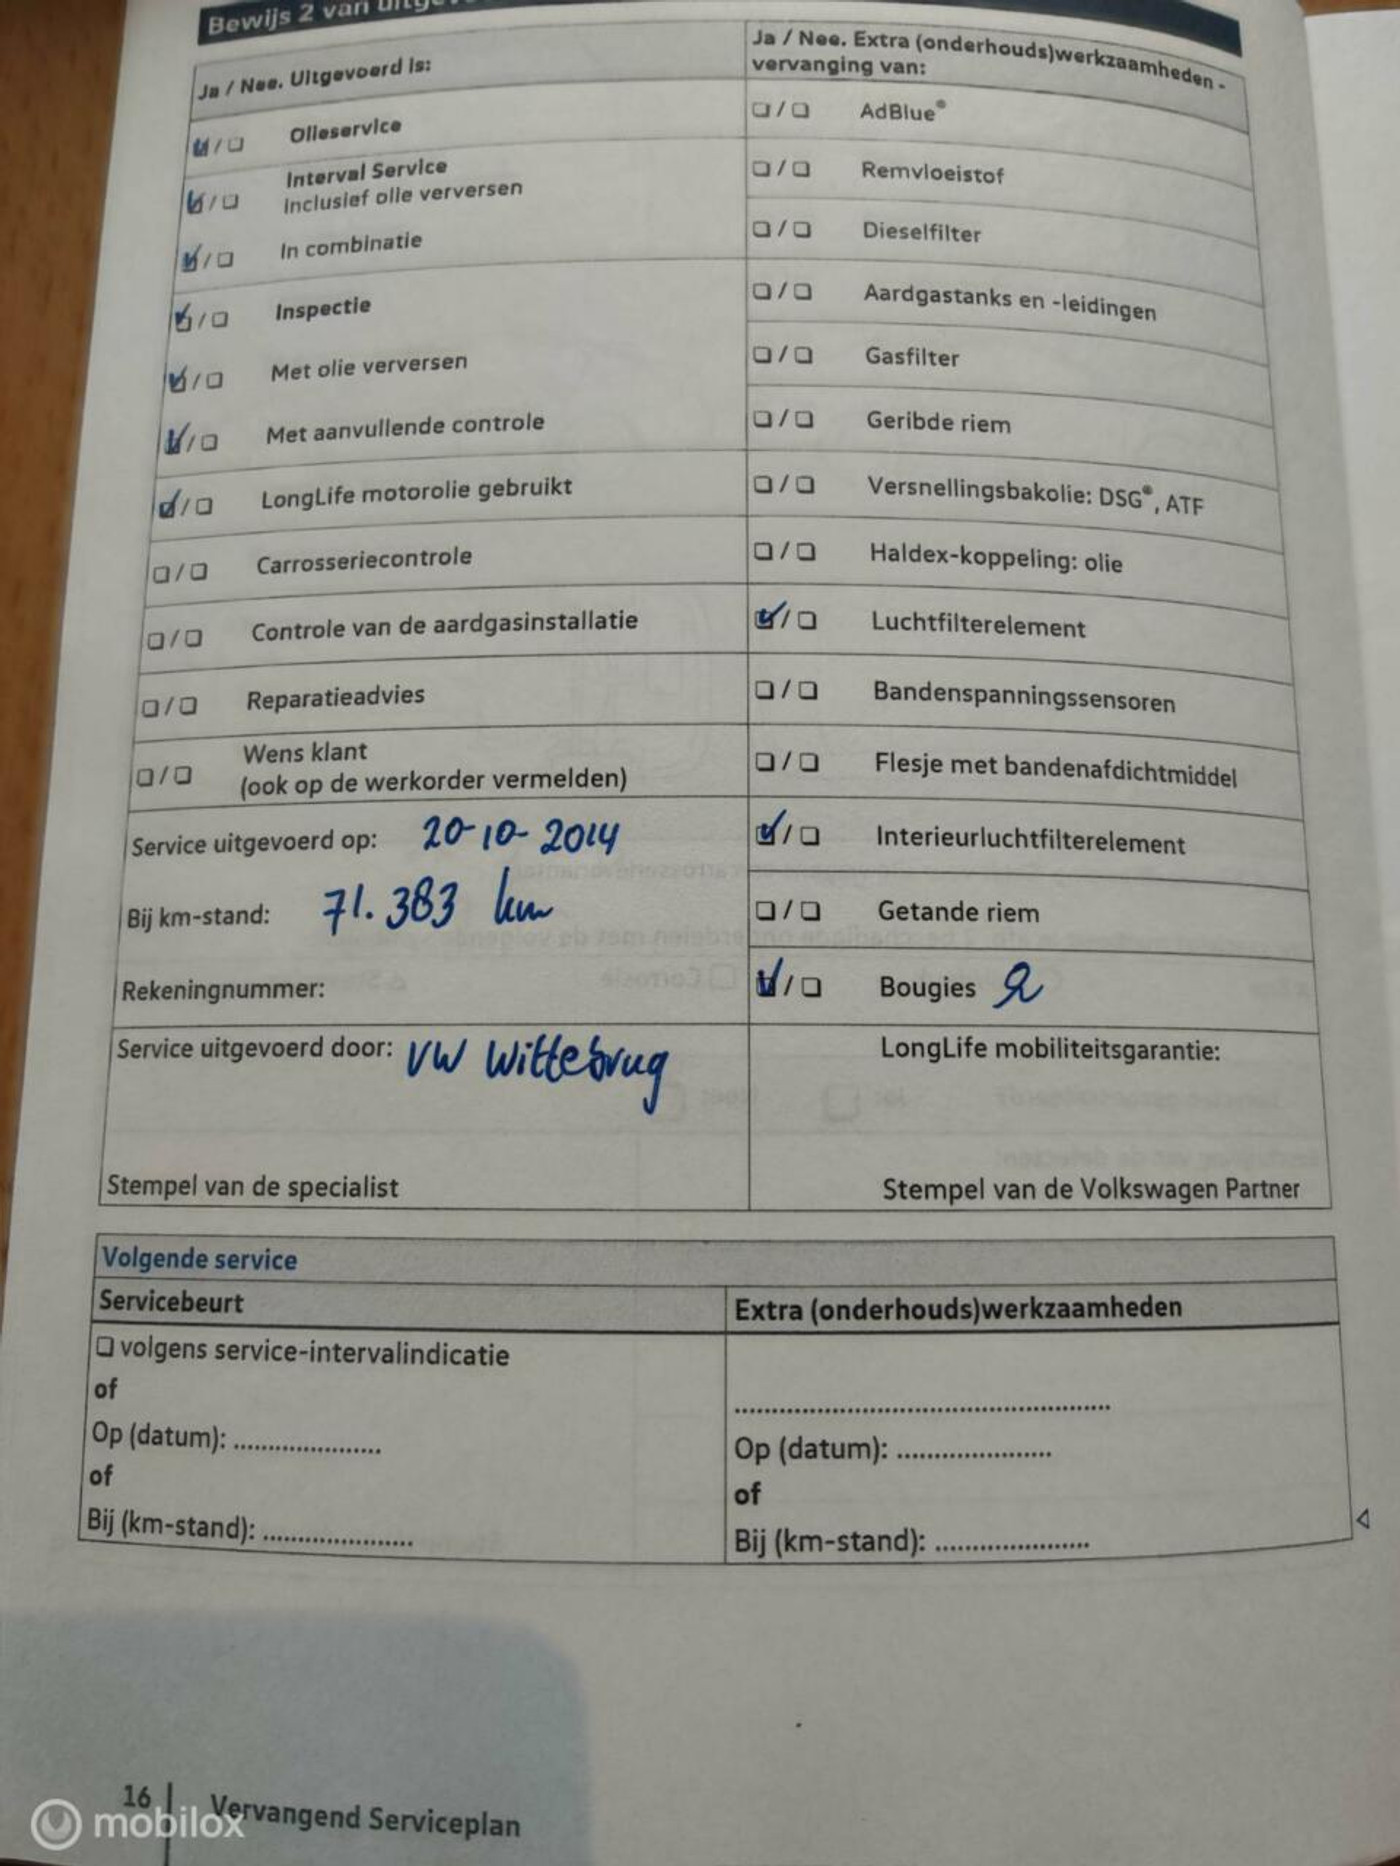 Bewijs 2 van
Ja / Nee. Uitgevoerd is:
☑ / ☐ Olieservice
☑ / ☐ Interval Service
Inclusief olie verversen
☑ / ☐ In combinatie
☑ / ☐ Inspectie
☑ / ☐ Met olie verversen
☑ / ☐ Met aanvullende controle
☑ / ☐ LongLife motorolie gebruikt
☐ / ☐ Carrosseriecontrole
☐ / ☐ Controle van de aardgasinstallatie
☐ / ☐ Reparatieadvies
☐ / ☐ Wens klant
(ook op de werkorder vermelden)
Service uitgevoerd op: 20-10-2014
Bij km-stand: 71.383 km
Rekeningnummer:
Service uitgevoerd door: VW Wittebrug
Stempel van de specialist
Ja / Nee. Extra (onderhouds)werkzaamheden -
vervanging van:
☐ / ☐ AdBlue®
☐ / ☐ Remvloeistof
☐ / ☐ Dieselfilter
☐ / ☐ Aardgastanks en -leidingen
☐ / ☐ Gasfilter
☐ / ☐ Geribde riem
☐ / ☐ Versnellingsbakolie: DSG®, ATF
☐ / ☐ Haldex-koppeling: olie
☑ / ☐ Luchtfilterelement
☐ / ☐ Bandenspanningssensoren
☐ / ☐ Flesje met bandenafdichtmiddel
☑ / ☐ Interieurluchtfilterelement
☐ / ☐ Getande riem
☑ / ☐ Bougies
LongLife mobiliteitsgarantie:
Stempel van de Volkswagen Partner
Volgende service
Servicebeurt
☐ volgens service-intervalindicatie
of
Op (datum): ......................
of
Bij (km-stand): ......................
Extra (onderhouds)werkzaamheden
........................................................
Op (datum): .......................
of
Bij (km-stand): .......................
16 Vervangend Serviceplan
mobilox